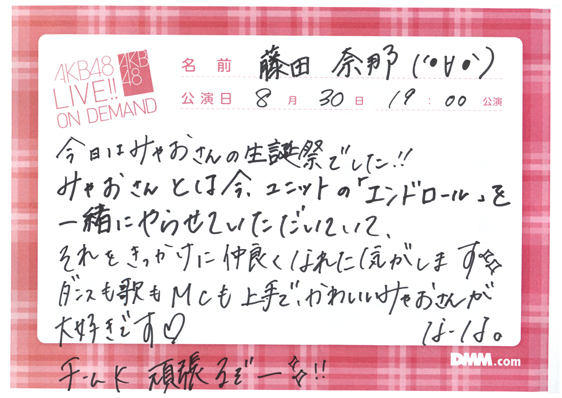 AKB48
LIVE!!
ON DEMAND
AKB
48
名前 藤田 奈那 (•∀•)
公演日 8月30日 19:00公演
今日はみゃおさんの生誕祭でした!!
みゃおさんとは今、ユニットの「エンドロール」を
一緒にやらせていただいていて、
それをきっかけに仲良くなれた気がします☆
ダンスも歌もMCも上手で、かわいいみゃおさんが
大好きです♡ なーな。
DMM.com
チームK 頑張るぞー☆!!